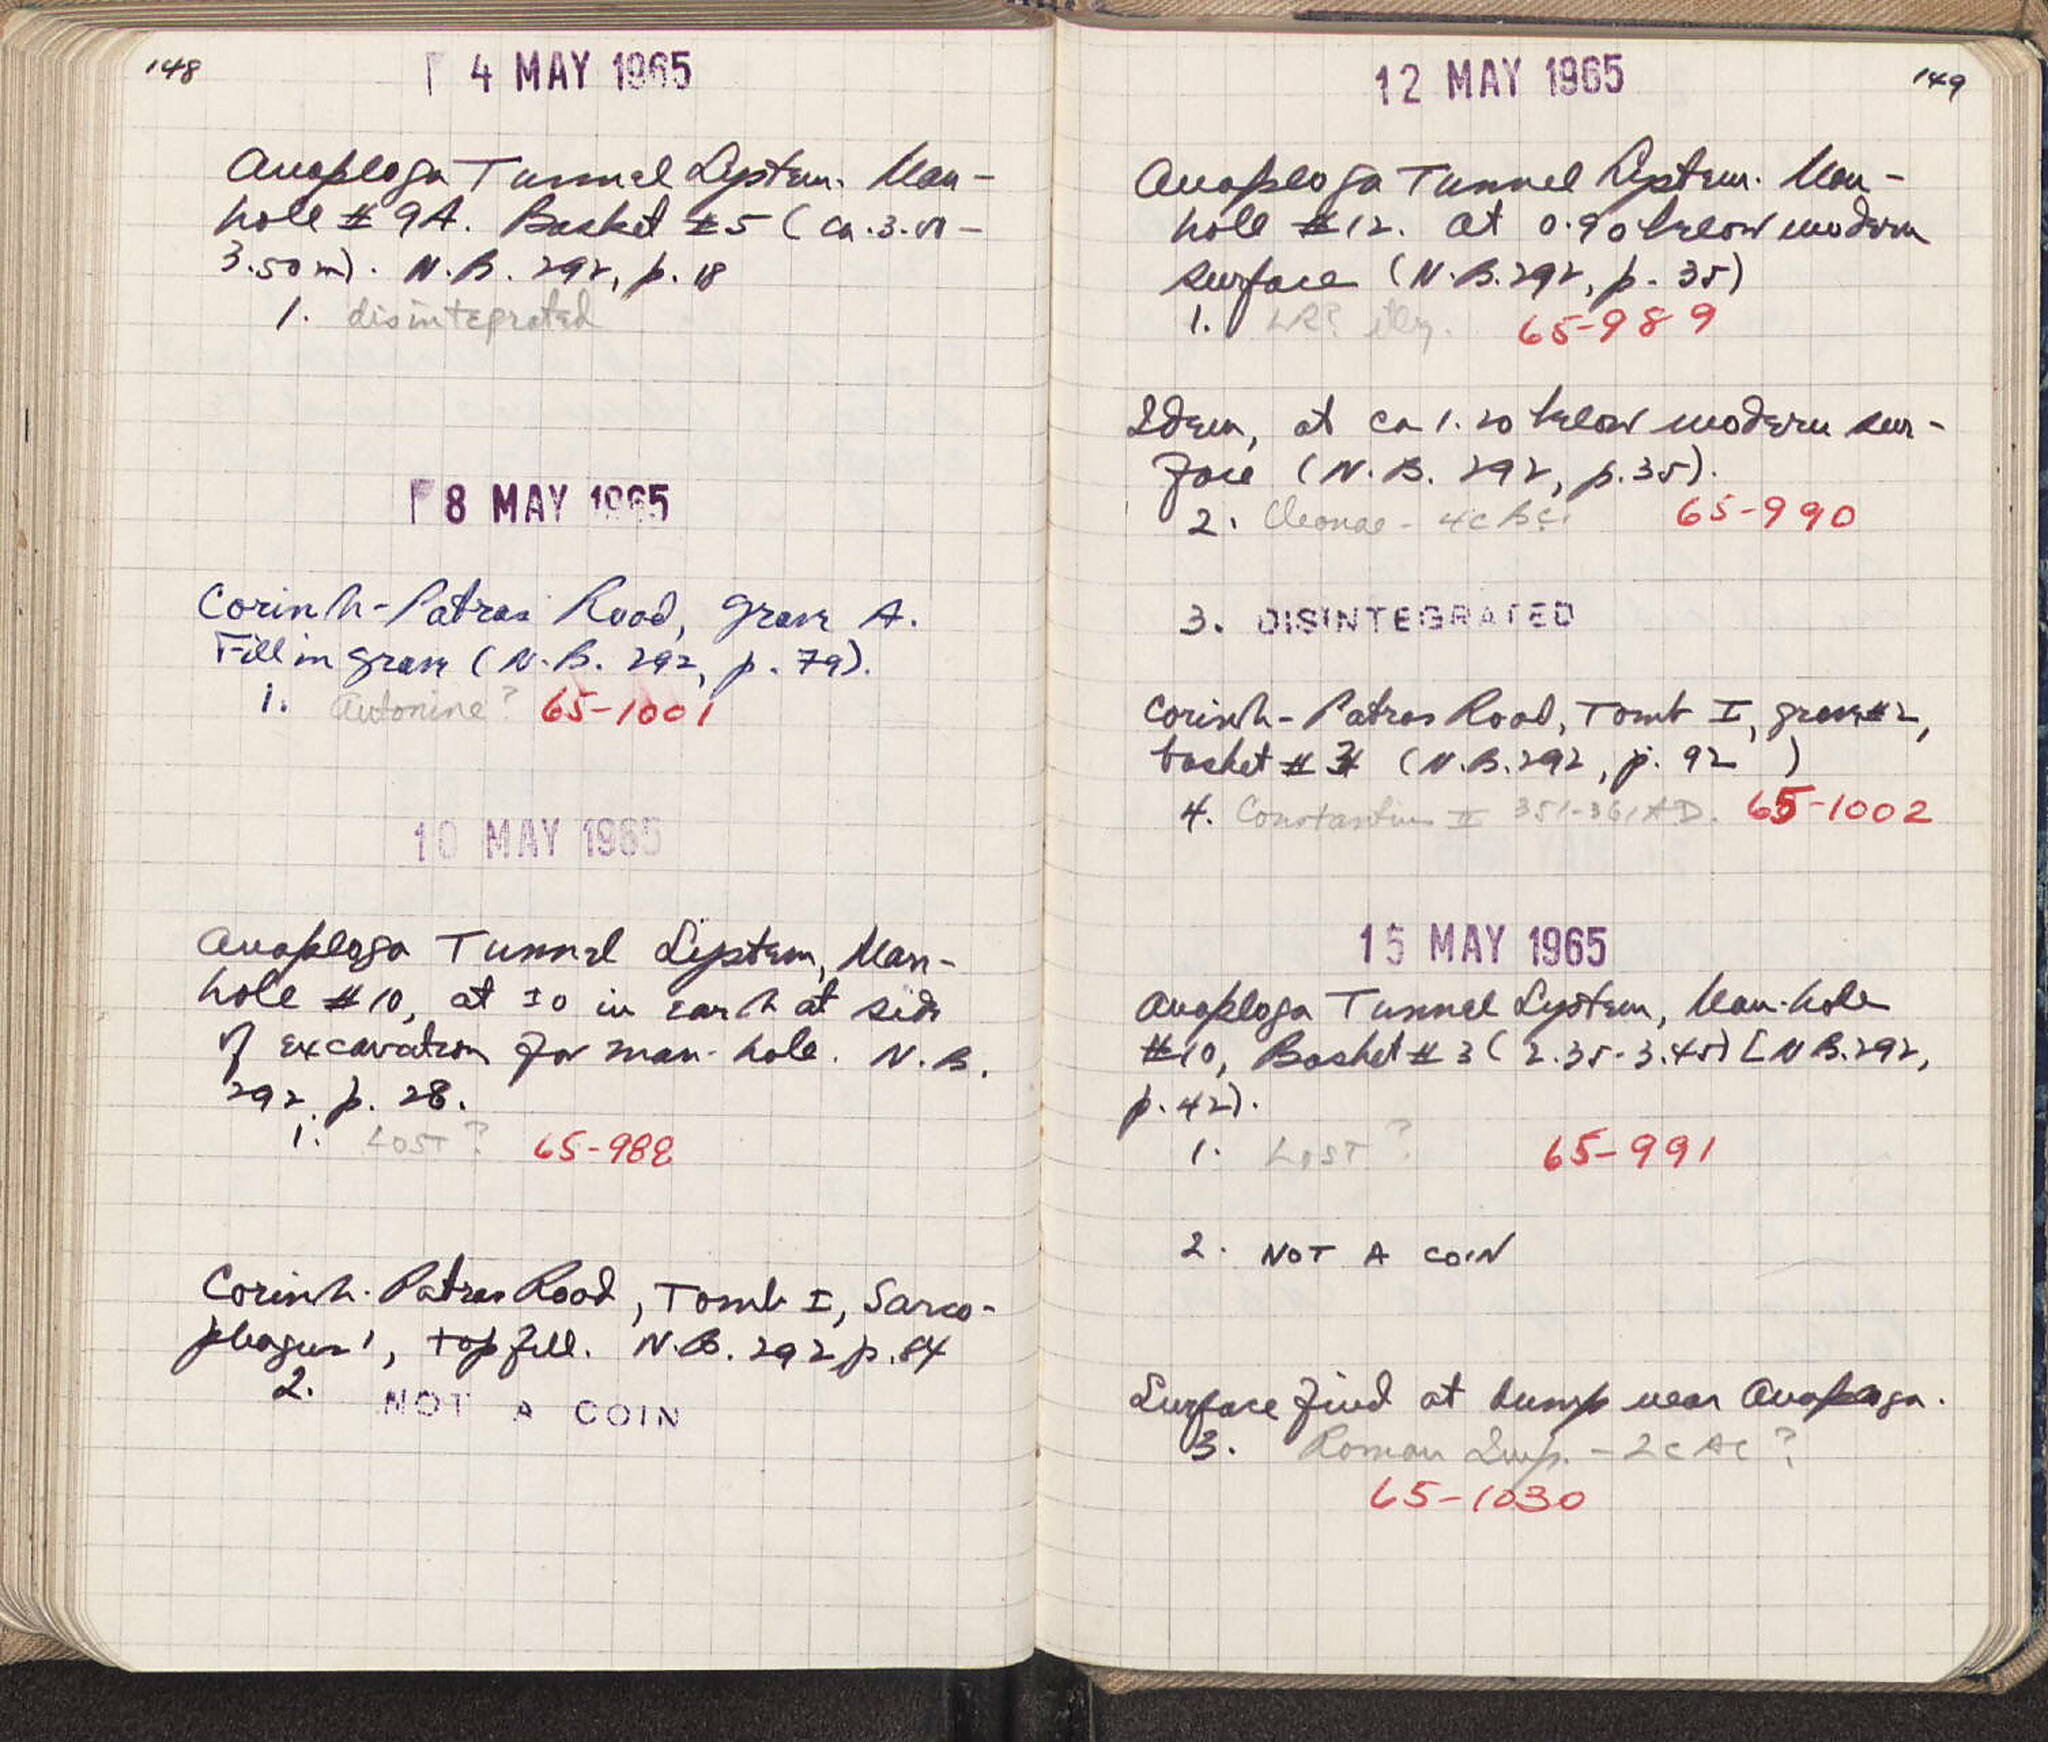 148
4 MAY 1965
Anaploga Tunnel System. Man-
hole # 9A. Basket #5 (ca. 3.00 -
3.50 m). N.B. 292, p. 18
1. disintegrated
8 MAY 1965
Corinth-Patras Road, grave A.
Fill in grave (N.B. 292, p. 79).
1. Antonine? 65-1001
10 MAY 1965
Anaploga Tunnel System, Man-
hole #10, at ±0 in earth at side
of excavation for man-hole. N.B.
292, p. 28.
1. LOST? 65-988
Corinth-Patras Road, Tomb I, Sarco-
phagus 1, top fill. N.B. 292 p. 84
2. NOT A COIN
149
12 MAY 1965
Anaploga Tunnel System. Man-
hole #12. At 0.90 below modern
surface (N.B. 292, p. 35)
1. LR? illeg. 65-989
Idem, at ca 1.20 below modern sur-
face (N.B. 292, p. 35).
2. Cleonae - 4c BC. 65-990
3. DISINTEGRATED
Corinth-Patras Road, Tomb I, grave #2,
basket # (N.B. 292, p. 92 )
4. Constantius II 351-361 AD. 65-1002
15 MAY 1965
Anaploga Tunnel System, Man-hole
#10, Basket #3 (2.35-3.45) [NB. 292,
p. 42).
1. LOST? 65-991
2. NOT A COIN
Surface find at dump near Anaploga.
3. Roman Imp. - 2c AC?
65-1030